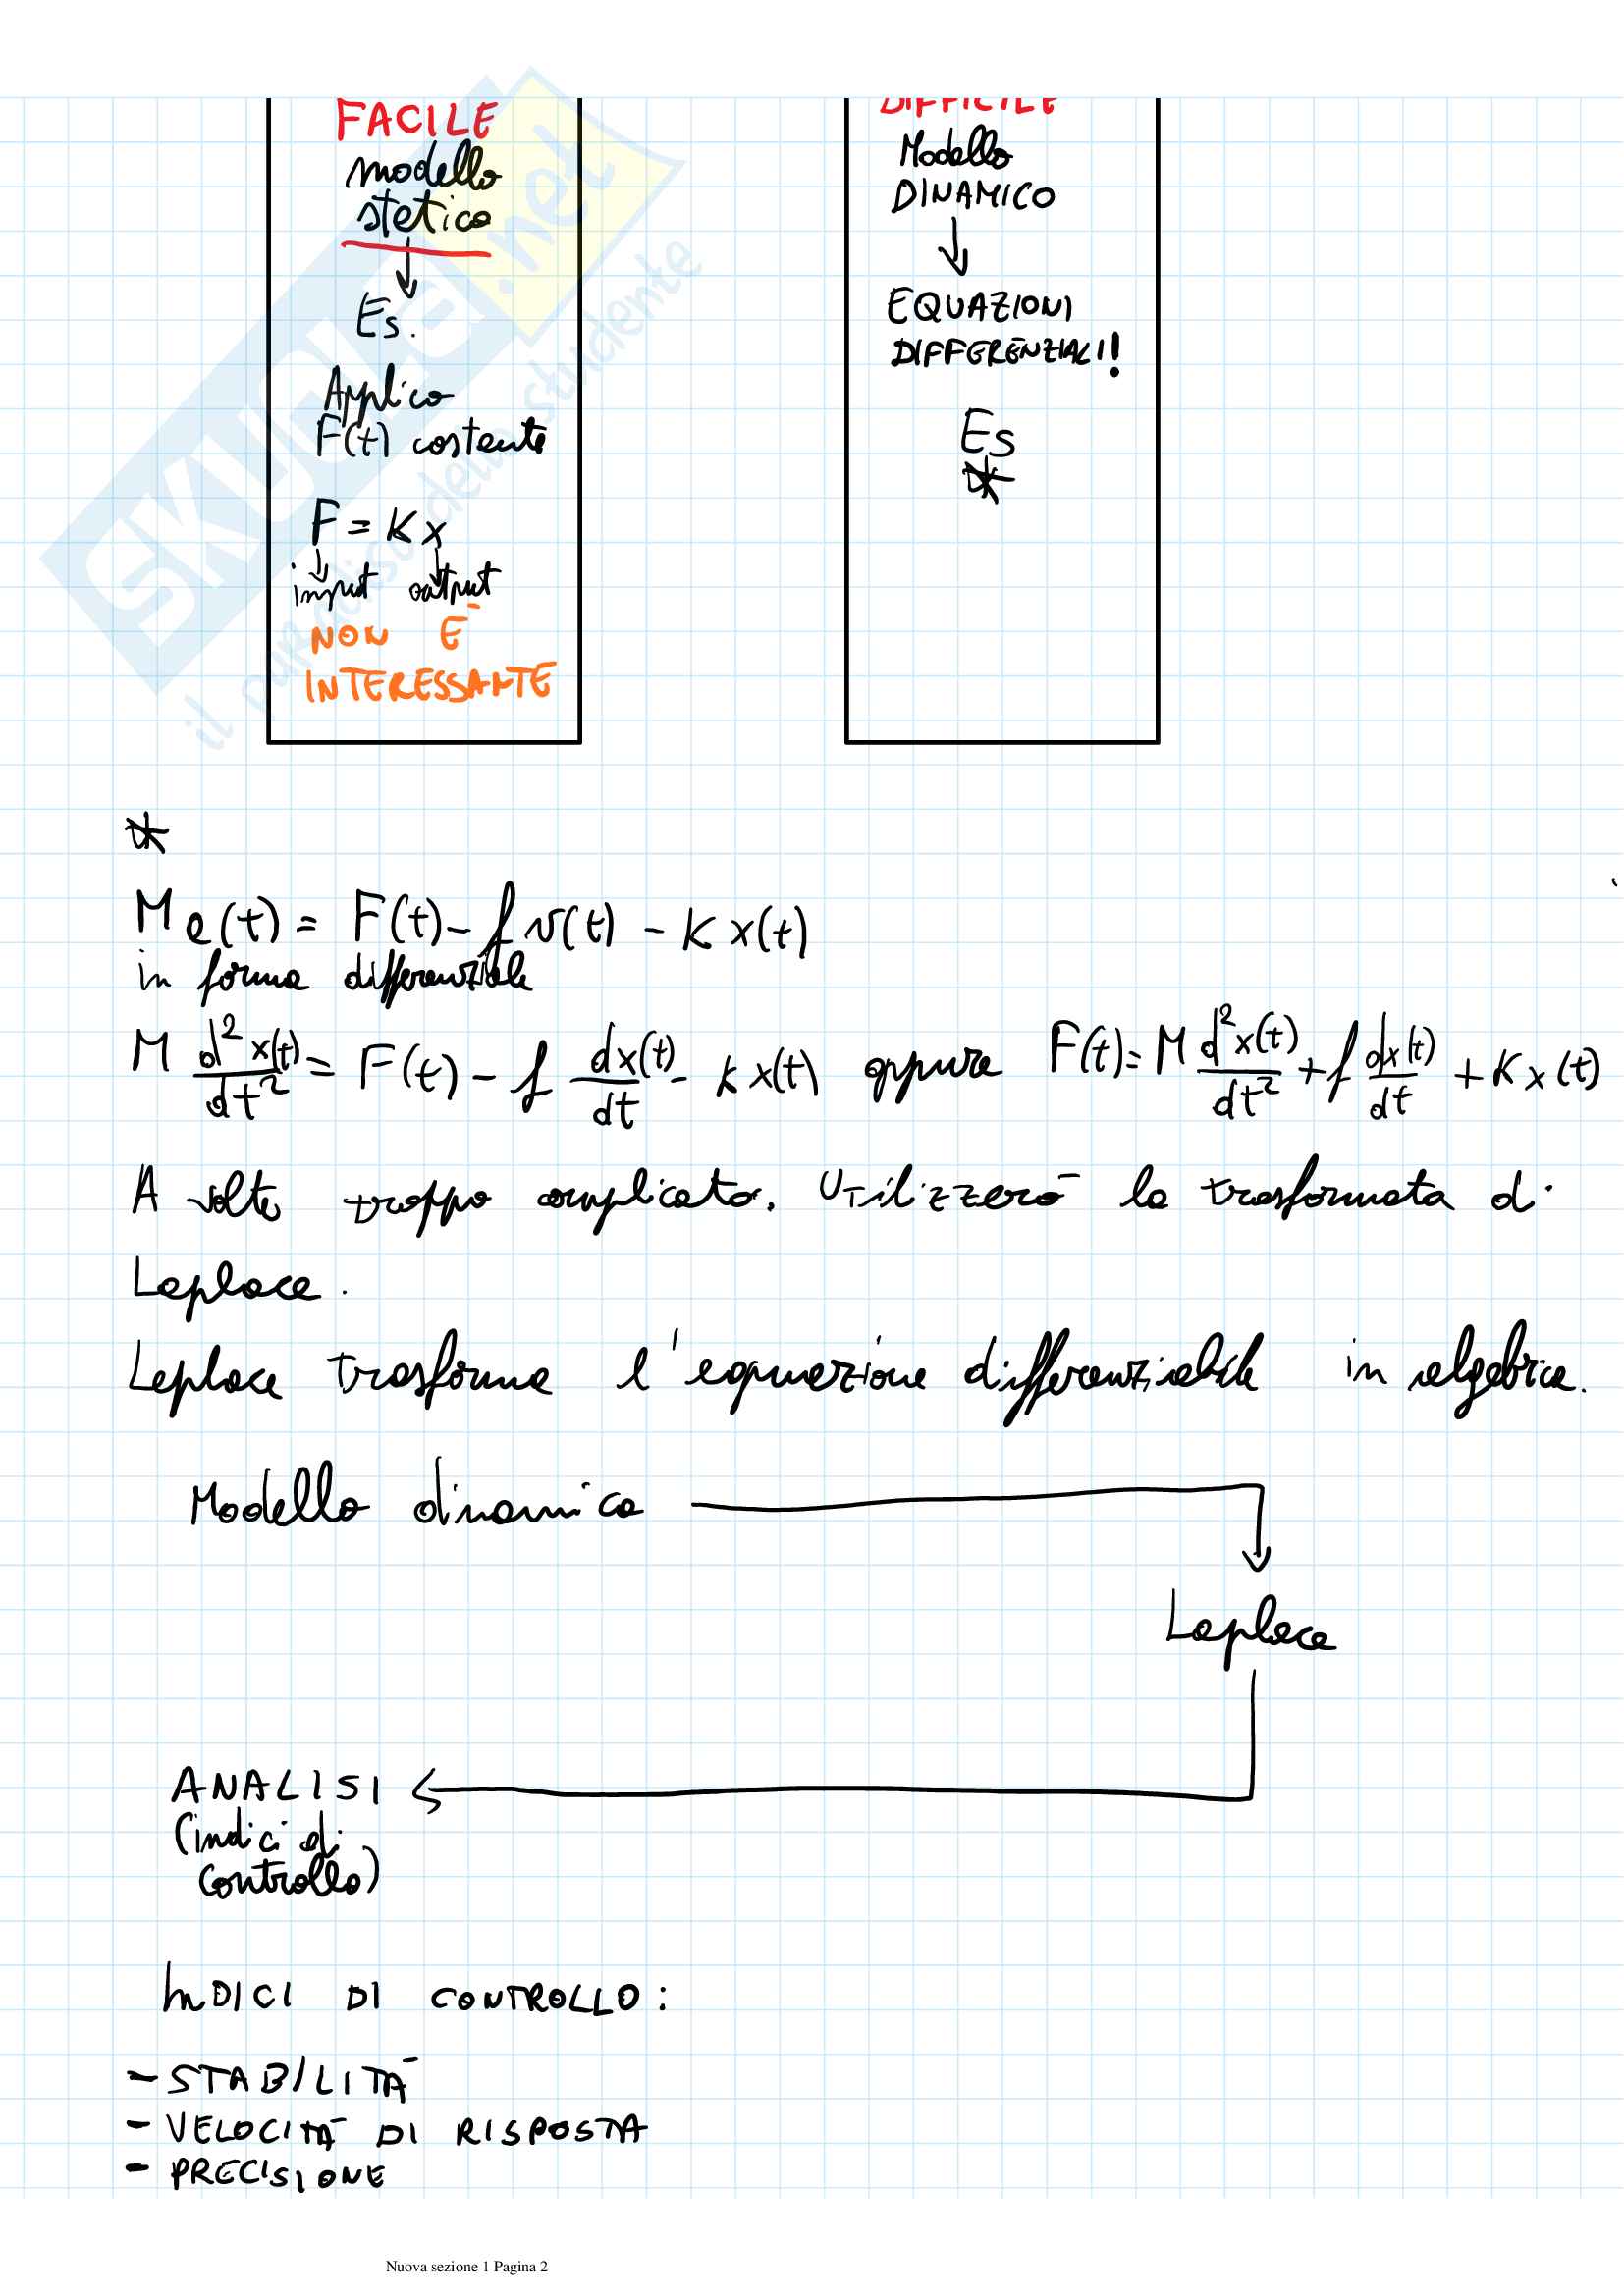 FACILE
modello
statico
Es.
Applico
F(t) costante
F = K x
input output
NON È
INTERESSANTE
DIFFICILE
Modello
DINAMICO
EQUAZIONI
DIFFERENZIALI!
Es
*
*
M a(t) = F(t) - f v(t) - K x(t)
in forma differenziale
M d²x(t)/dt² = F(t) - f dx(t)/dt - K x(t) oppure F(t) = M d²x(t)/dt² + f dx(t)/dt + K x(t)
A volte troppo complicato. Utilizzerò la trasformata di
Laplace.
Laplace trasforma l'equazione differenziabile in algebrica.
Modello dinamico
Laplace
ANALISI
(indici di
controllo)
INDICI DI CONTROLLO:
- STABILITÀ
- VELOCITÀ DI RISPOSTA
- PRECISIONE
SKUOLA.net
il paradiso dello studente
Nuova sezione 1 Pagina 2